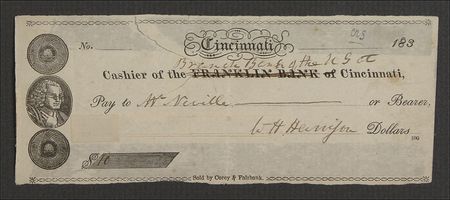 No. Cincinnati 183
Branch Bank of the U S at
Cashier of the FRANKLIN BANK of Cincinnati,
Pay to Mr Neville or Bearer,
W H Harrison Dollars
100
$ 10
Sold by Corey & Fairbank.